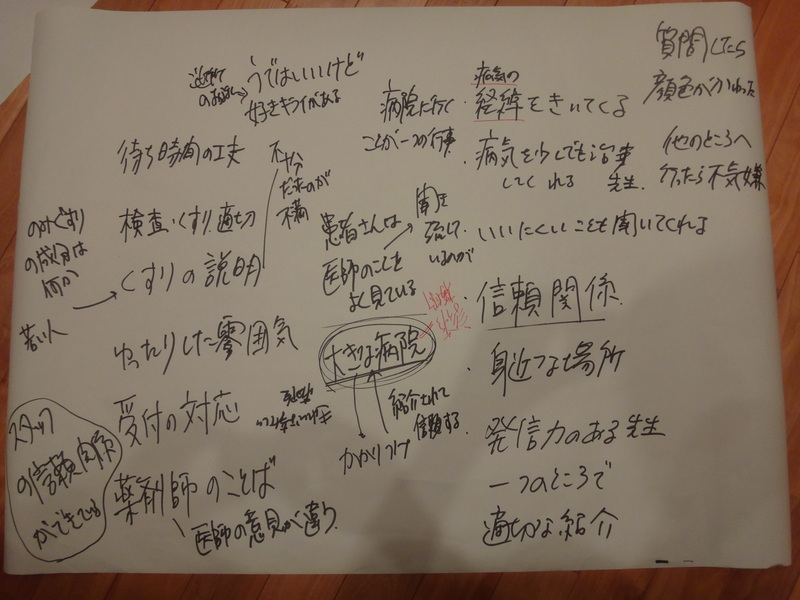 うではいいけど
好きキライがある
待ち時間の工夫
不十分
だ
のが
不満
検査・くすり適切
のみぐすり
の成分は
何か
くすりの説明
若い人
ゆったりした雰囲気
受付の対応
スタッフ
の信頼関係
ができている
薬剤師のことば
医師の意見が違う
病院に行く
ことが一つの行事
患者さんは
医師のことを
よく見ている
聞き
流して
いるのが
大きな病院
紹介されて
信頼する
かかりつけ
病気の
・経緯をきいてくる
・病気を少しでも治
してくれる 先生
・いいにくいことも聞いてくれる
・信頼関係
・身近な場所
・発信力のある先生
一つのところで
適切な紹介
質問したら
顔色がかわった
他のところへ
行ったら不気嫌